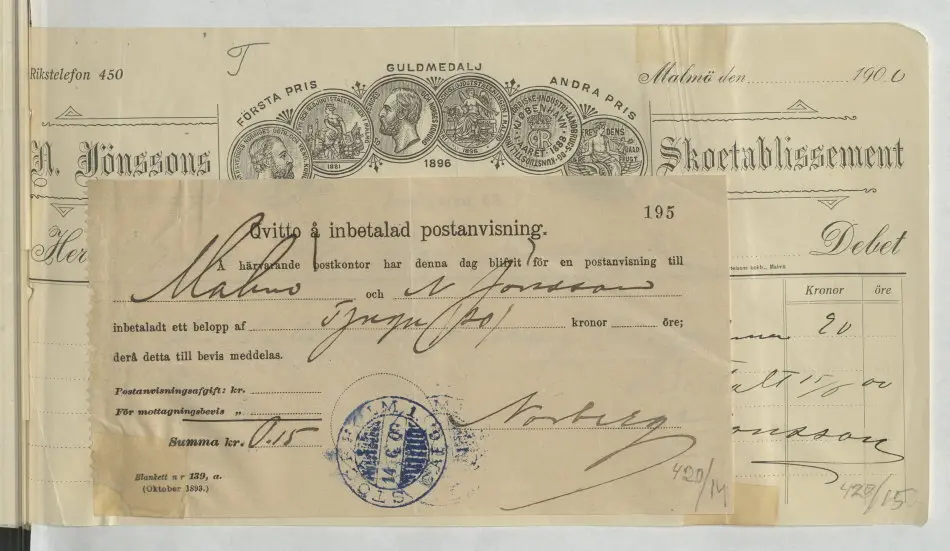 Rikstelefon 450
T
FÖRSTA PRIS
GULDMEDALJ
ANDRA PRIS
1881
1896
KØBENHAVN
AARET 1888
Malmö den 190 0
N. Jönssons
Skoetablissement
Her
Debet
Kronor öre
20
alt 15/6 00
onsson
428/15
195
Qvitto å inbetalad postanvisning.
Å härvarande postkontor har denna dag blifvit för en postanvisning till
Malmö och N Jönsson
inbetaldt ett belopp af Tjugu (20) kronor öre;
derå detta till bevis meddelas.
Postanvisningsafgift: kr.
För mottagningsbevis „
Summa kr. 0.15
Norberg
STOCKHOLM 1
Blankett n r 139, a.
(Oktober 1893.)
420/14